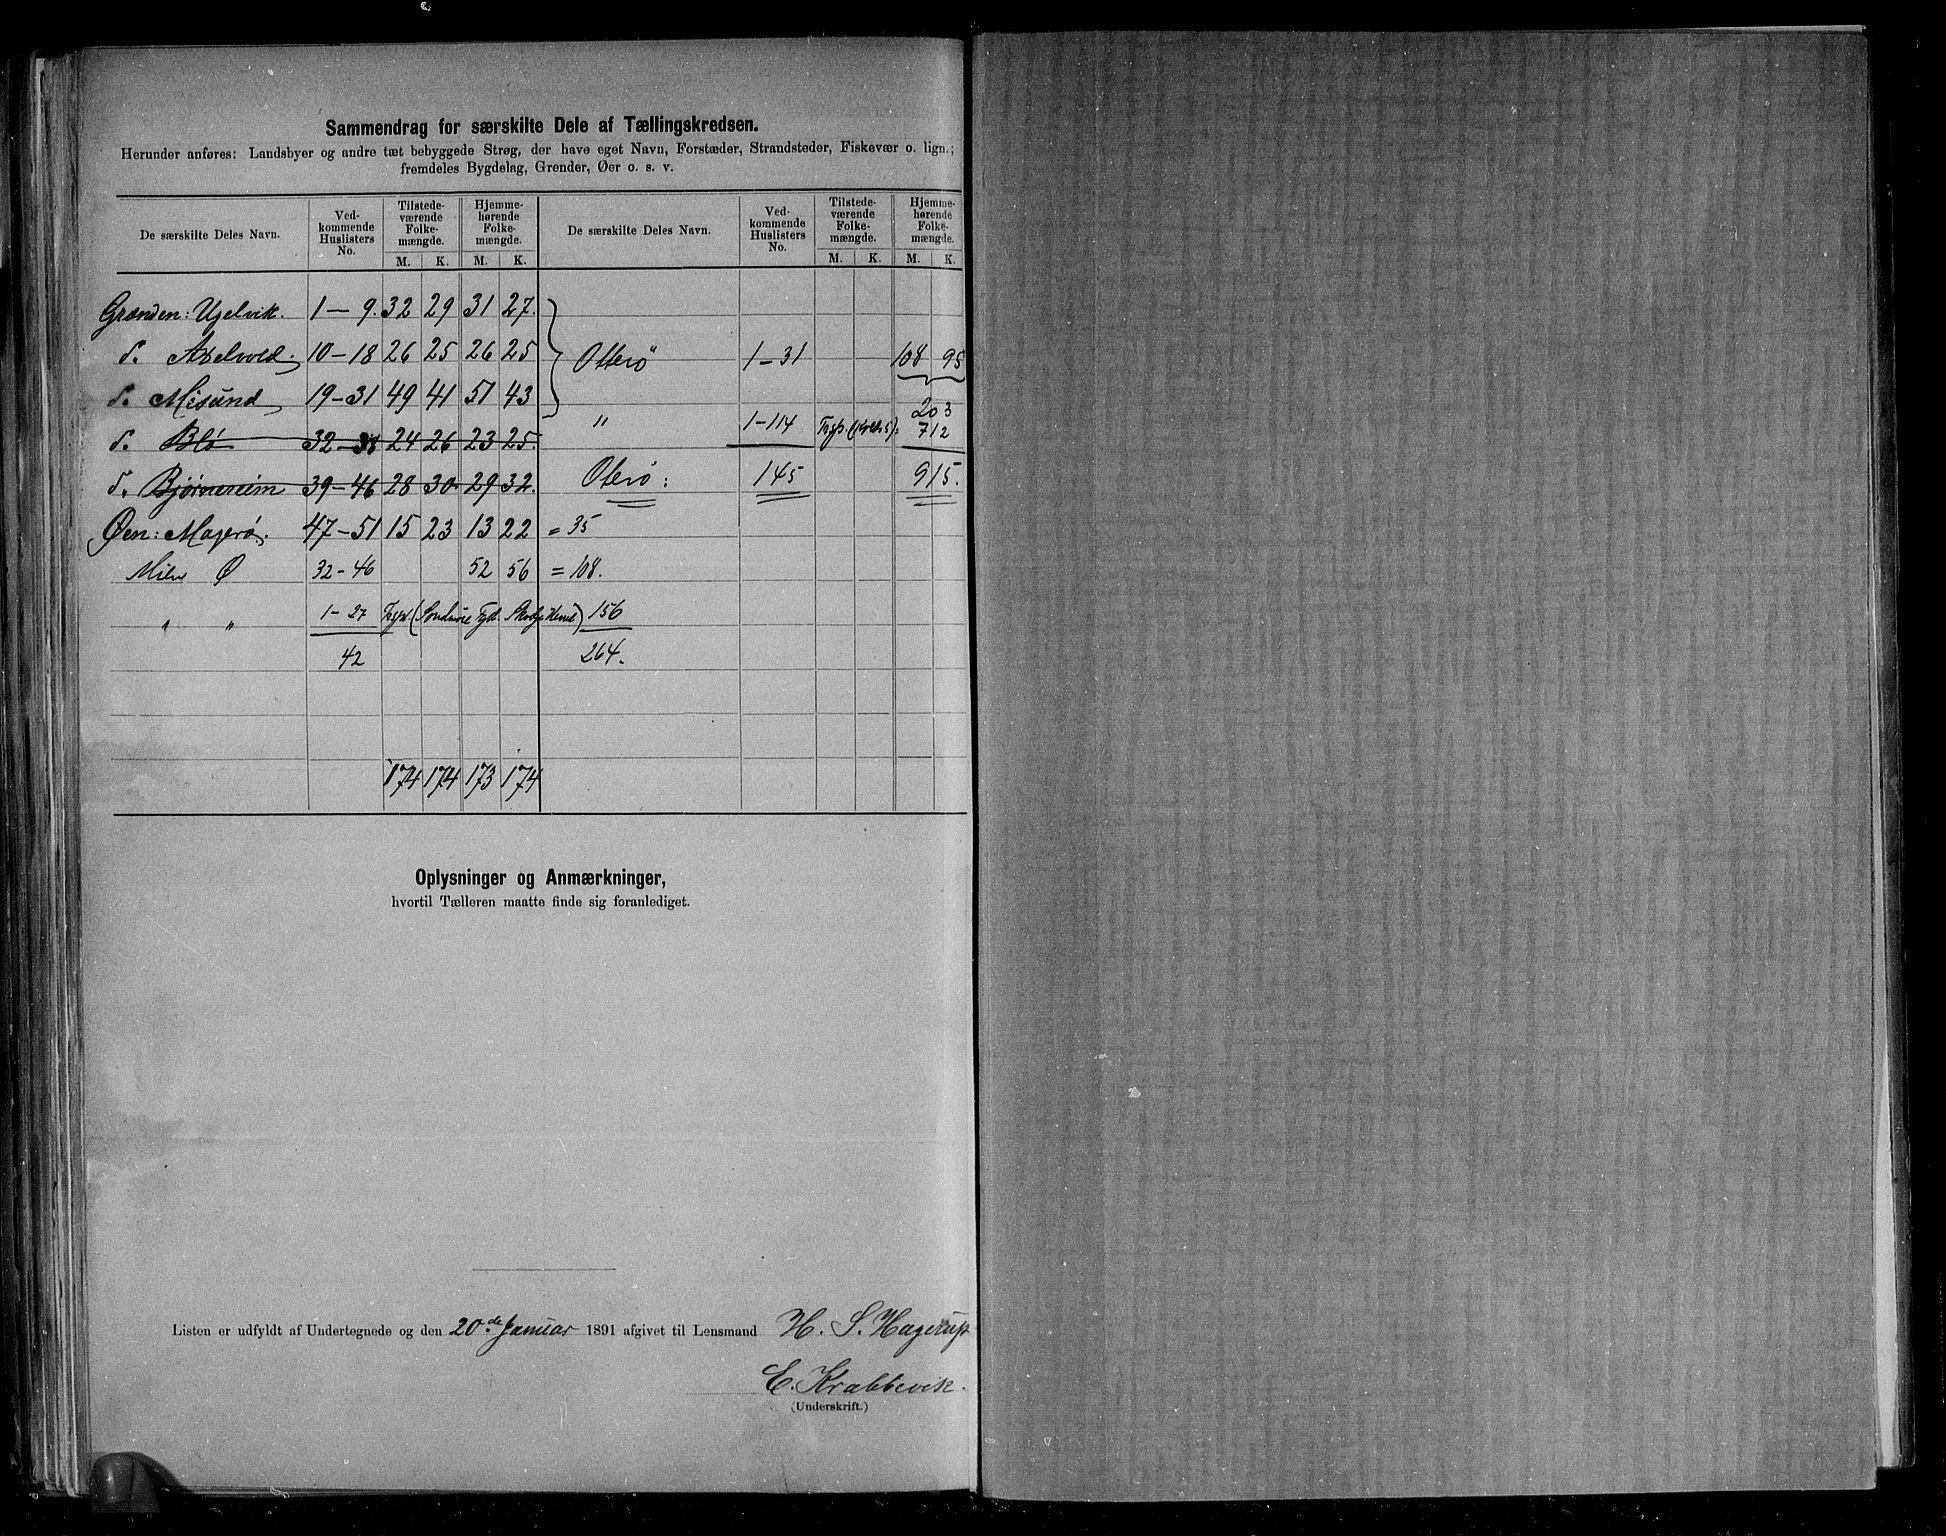 Sammendrag for særskilte Dele af Tællingskredsen.
Herunder anføres: Landsbyer og andre tæt bebyggede Strøg, der have eget Navn, Forstæder, Strandsteder, Fiskevær o. lign.;
fremdeles Bygdelag, Grender, Øer o. s. v.
De særskilte Deles Navn. Ved-kommende Huslisters No. Tilstede-værende Folke-mængde. Hjemme-hørende Folke-mængde. De særskilte Deles Navn. Ved-kommende Huslisters No. Tilstede-værende Folke-mængde. Hjemme-hørende Folke-mængde.
M. K. M. K. M. K. M. K.
Grænden: Ugelvik. 1 — 9. 32 29 31 27.
d. Axelvold. 10-18 26 25 26 25 Otterö 1-31 108 95
d. Misund 19-31 49 41 51 43 203
d. Blø 32-38 24 26 23 25. " 1-114 712
d. Bjørnereim 39-46 28 30 29 32. Oterö: 145 915.
Øen: Magerø. 47-51 15 23 13 22 = 35
Mien Ø 32-46 52 56 = 108.
" " 1-27 156
42 264.
174 174 173 174
Oplysninger og Anmærkninger,
hvortil Tælleren maatte finde sig foranlediget.
Listen er udfyldt af Undertegnede og den 20de Januar 1891 afgivet til Lensmand H. S. Hagerup
E. Krabbevik.
(Underskrift.)